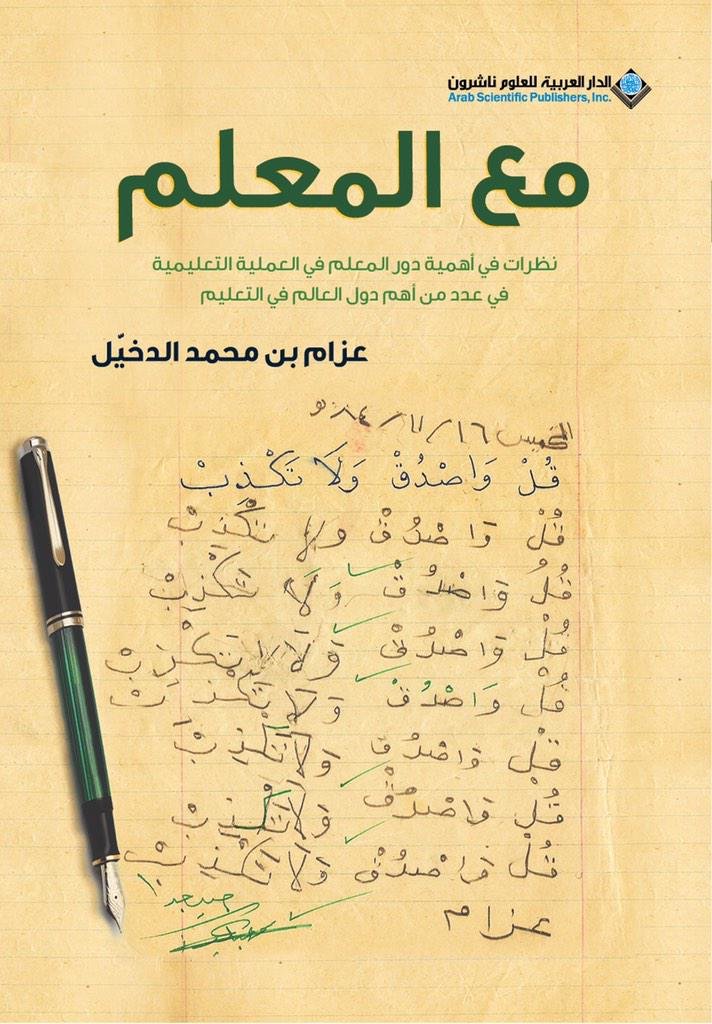 الدار العربية للعلوم ناشرون
Arab Scientific Publishers, Inc.
مع المعلم
نظرات في أهمية دور المعلم في العملية التعليمية
في عدد من أهم دول العالم في التعليم
عزام بن محمد الدخيّل
الخميس ١٦/١١/٨٤هـ
قُلْ وَاصْدُقْ وَلَا تَكْذِبْ
قُلْ وَاصْدُقْ ولا تَكْذِبْ
قُلْ وَاصْدُقْ وَلَا تَكْذِبْ
قُلْ وَاصْدُقْ وَلَا تَكْذِبْ
قُلْ وَاصْدُقْ وَلَا تَكْذِبْ
قُلْ وَاصْدُقْ وَلَا تَكْذِبْ
قُلْ وَاصْدُقْ وَلَا تَكْذِبْ
قُلْ وَاصْدُقْ وَلَا تَكْذِبْ
عزام
جيد جدا ١٠